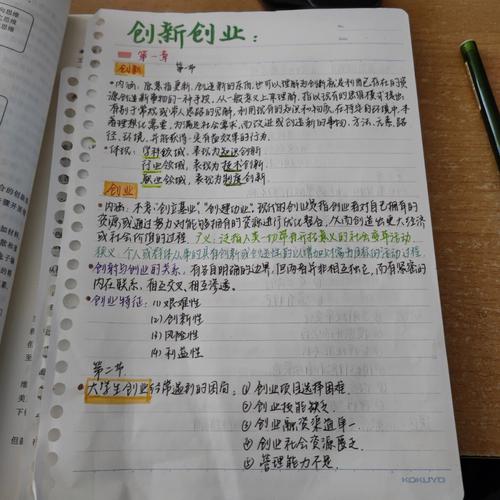 创新创业:
第一章
创新 第一节
•内涵:原意指更新、创造新的东西,也可以理解为创新就是利用已存在的资
源创造新事物的一种手段。从一般意义上来理解,指以现有的思维模式提出
有别于常规或常人思路的见解,利用现有的知识和物质,在特定的环境中,本
着理想化需要,为满足社会需求,而改进或创造新的事物、方法、元素、路
径、环境,并能获得一定有益效果的行为。
•体现:学科领域,表现为知识创新
行业领域,表现为技术创新
职业领域,表现为制度创新.
创业
•内涵:本意“创立基业”“创建功业”,现代的创业是指创业者对自己拥有的
资源或通过努力对能够拥有的资源进行优化整合,从而创造出更大经济
或社会价值的过程。广义:泛指人类一切带有开拓意义的社会变革活动.
狭义:个人或群体从事的具有创新或创造性的以增加财富为目标的活动过程.
•创新与创业的关系:有各自明确的边界,但两者并非相互独立,而有紧密的
内在联系,相互交叉,相互渗透。
•创业特征:(1)艰难性
(2)创新性
(3)风险性
(4)利益性
第二节
大学生创业经常遇到的困局:① 创业项目选择困难.
② 创业技能缺乏.
③ 创业融资渠道单一.
④ 创业社会资源匮乏.
⑤ 管理能力不足.
KOKUYO